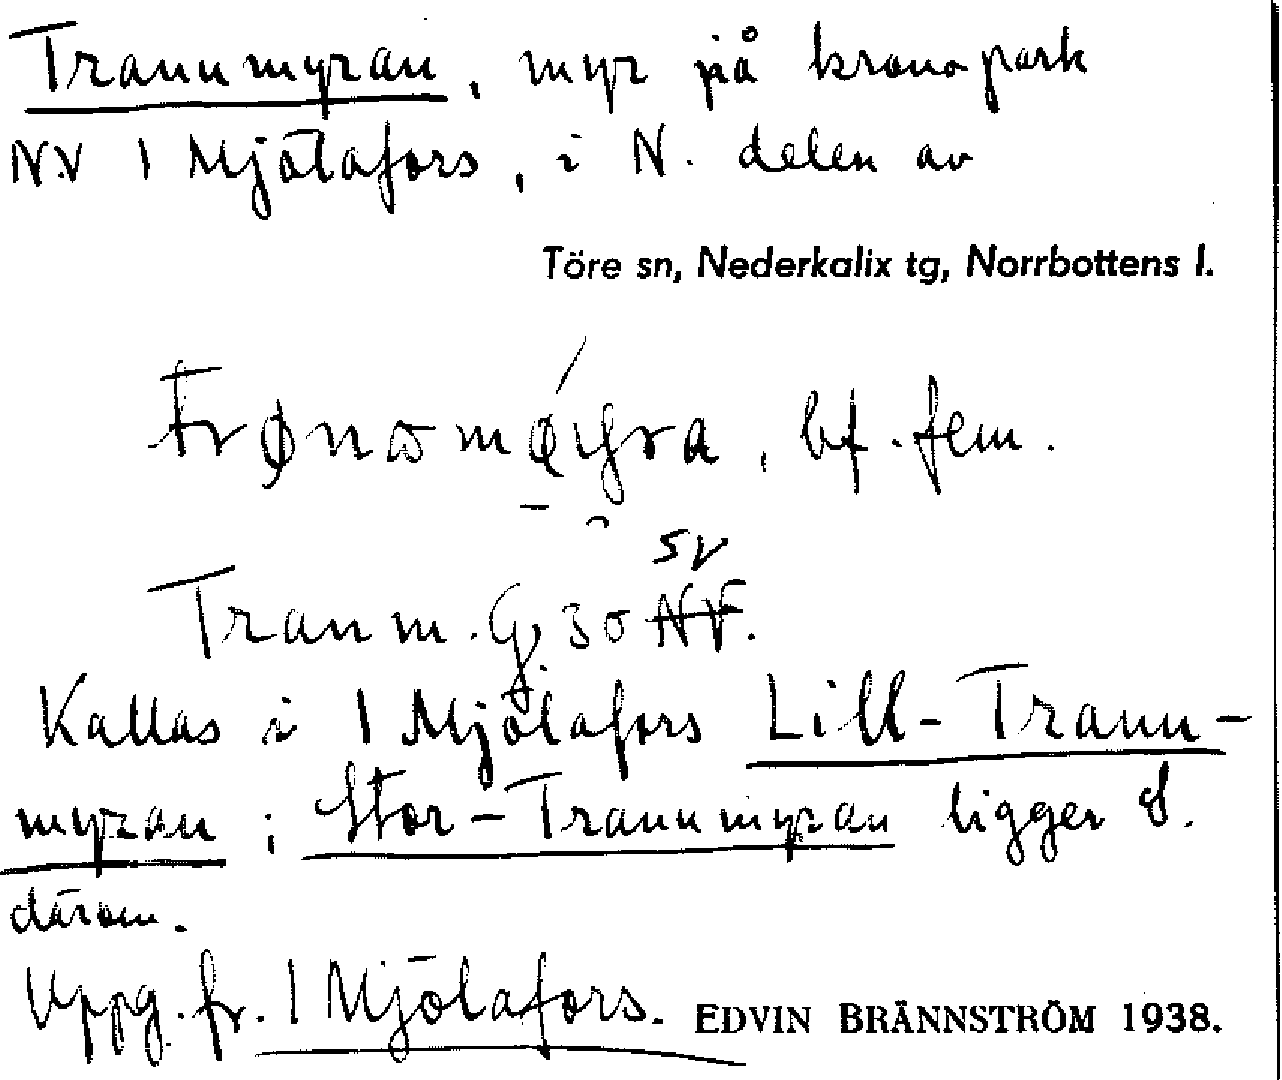 Tranumyran, myr på kronopark
NV 1 Mjölafors, i N. delen av
Töre sn, Nederkalix tg, Norrbottens l.
bf. fem.
SV
Tranm. G 30 NV.
Kallas i 1 Mjölafors Lill-Tranu-
myran; Stor-Tranumyran ligger S.
därom.
Uppg. fr. 1 Mjölafors. EDVIN BRÄNNSTRÖM 1938.